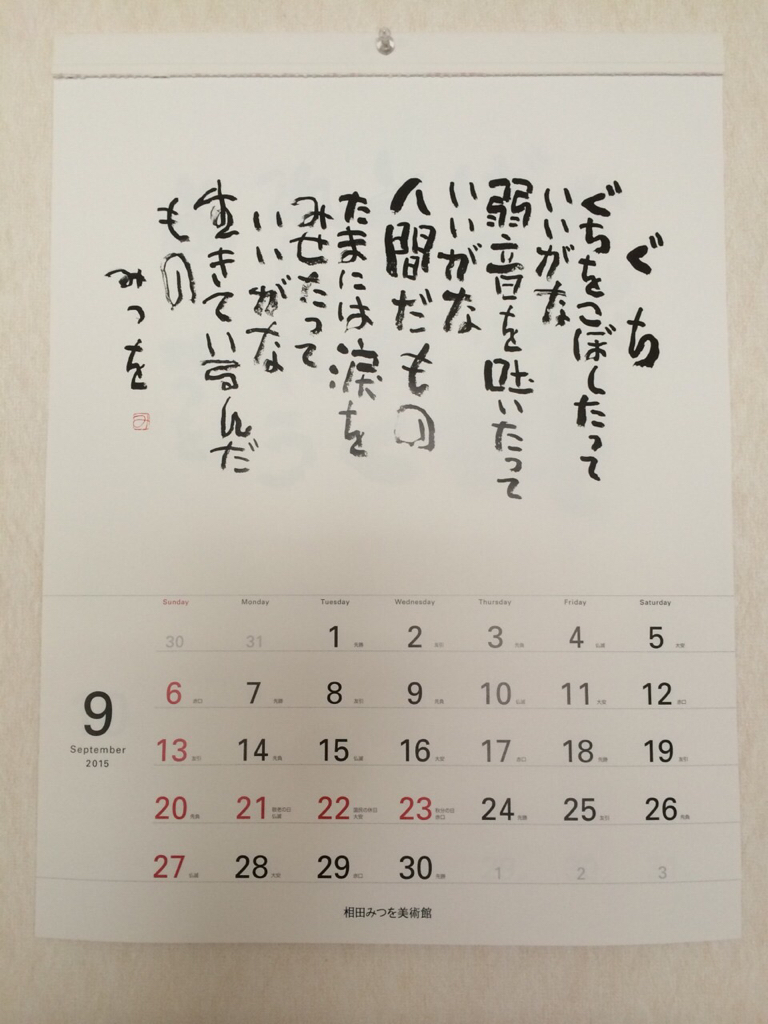 ぐち
ぐちをこぼしたって
いいがな
弱音を吐いたって
いいがな
人間だもの
たまには涙を
みせたって
いいがな
生きているんだ
もの
みつを
Sunday Monday Tuesday Wednesday Thursday Friday Saturday
30 31 1 先勝 2 友引 3 先負 4 仏滅 5 大安
9
September
2015
6 赤口 7 先勝 8 友引 9 先負 10 仏滅 11 大安 12 赤口
13 友引 14 先負 15 仏滅 16 大安 17 赤口 18 先勝 19 友引
20 先負 21 敬老の日 仏滅 22 国民の休日 大安 23 秋分の日 赤口 24 先勝 25 友引 26 先負
27 仏滅 28 大安 29 赤口 30 先勝 1 2 3
相田みつを美術館